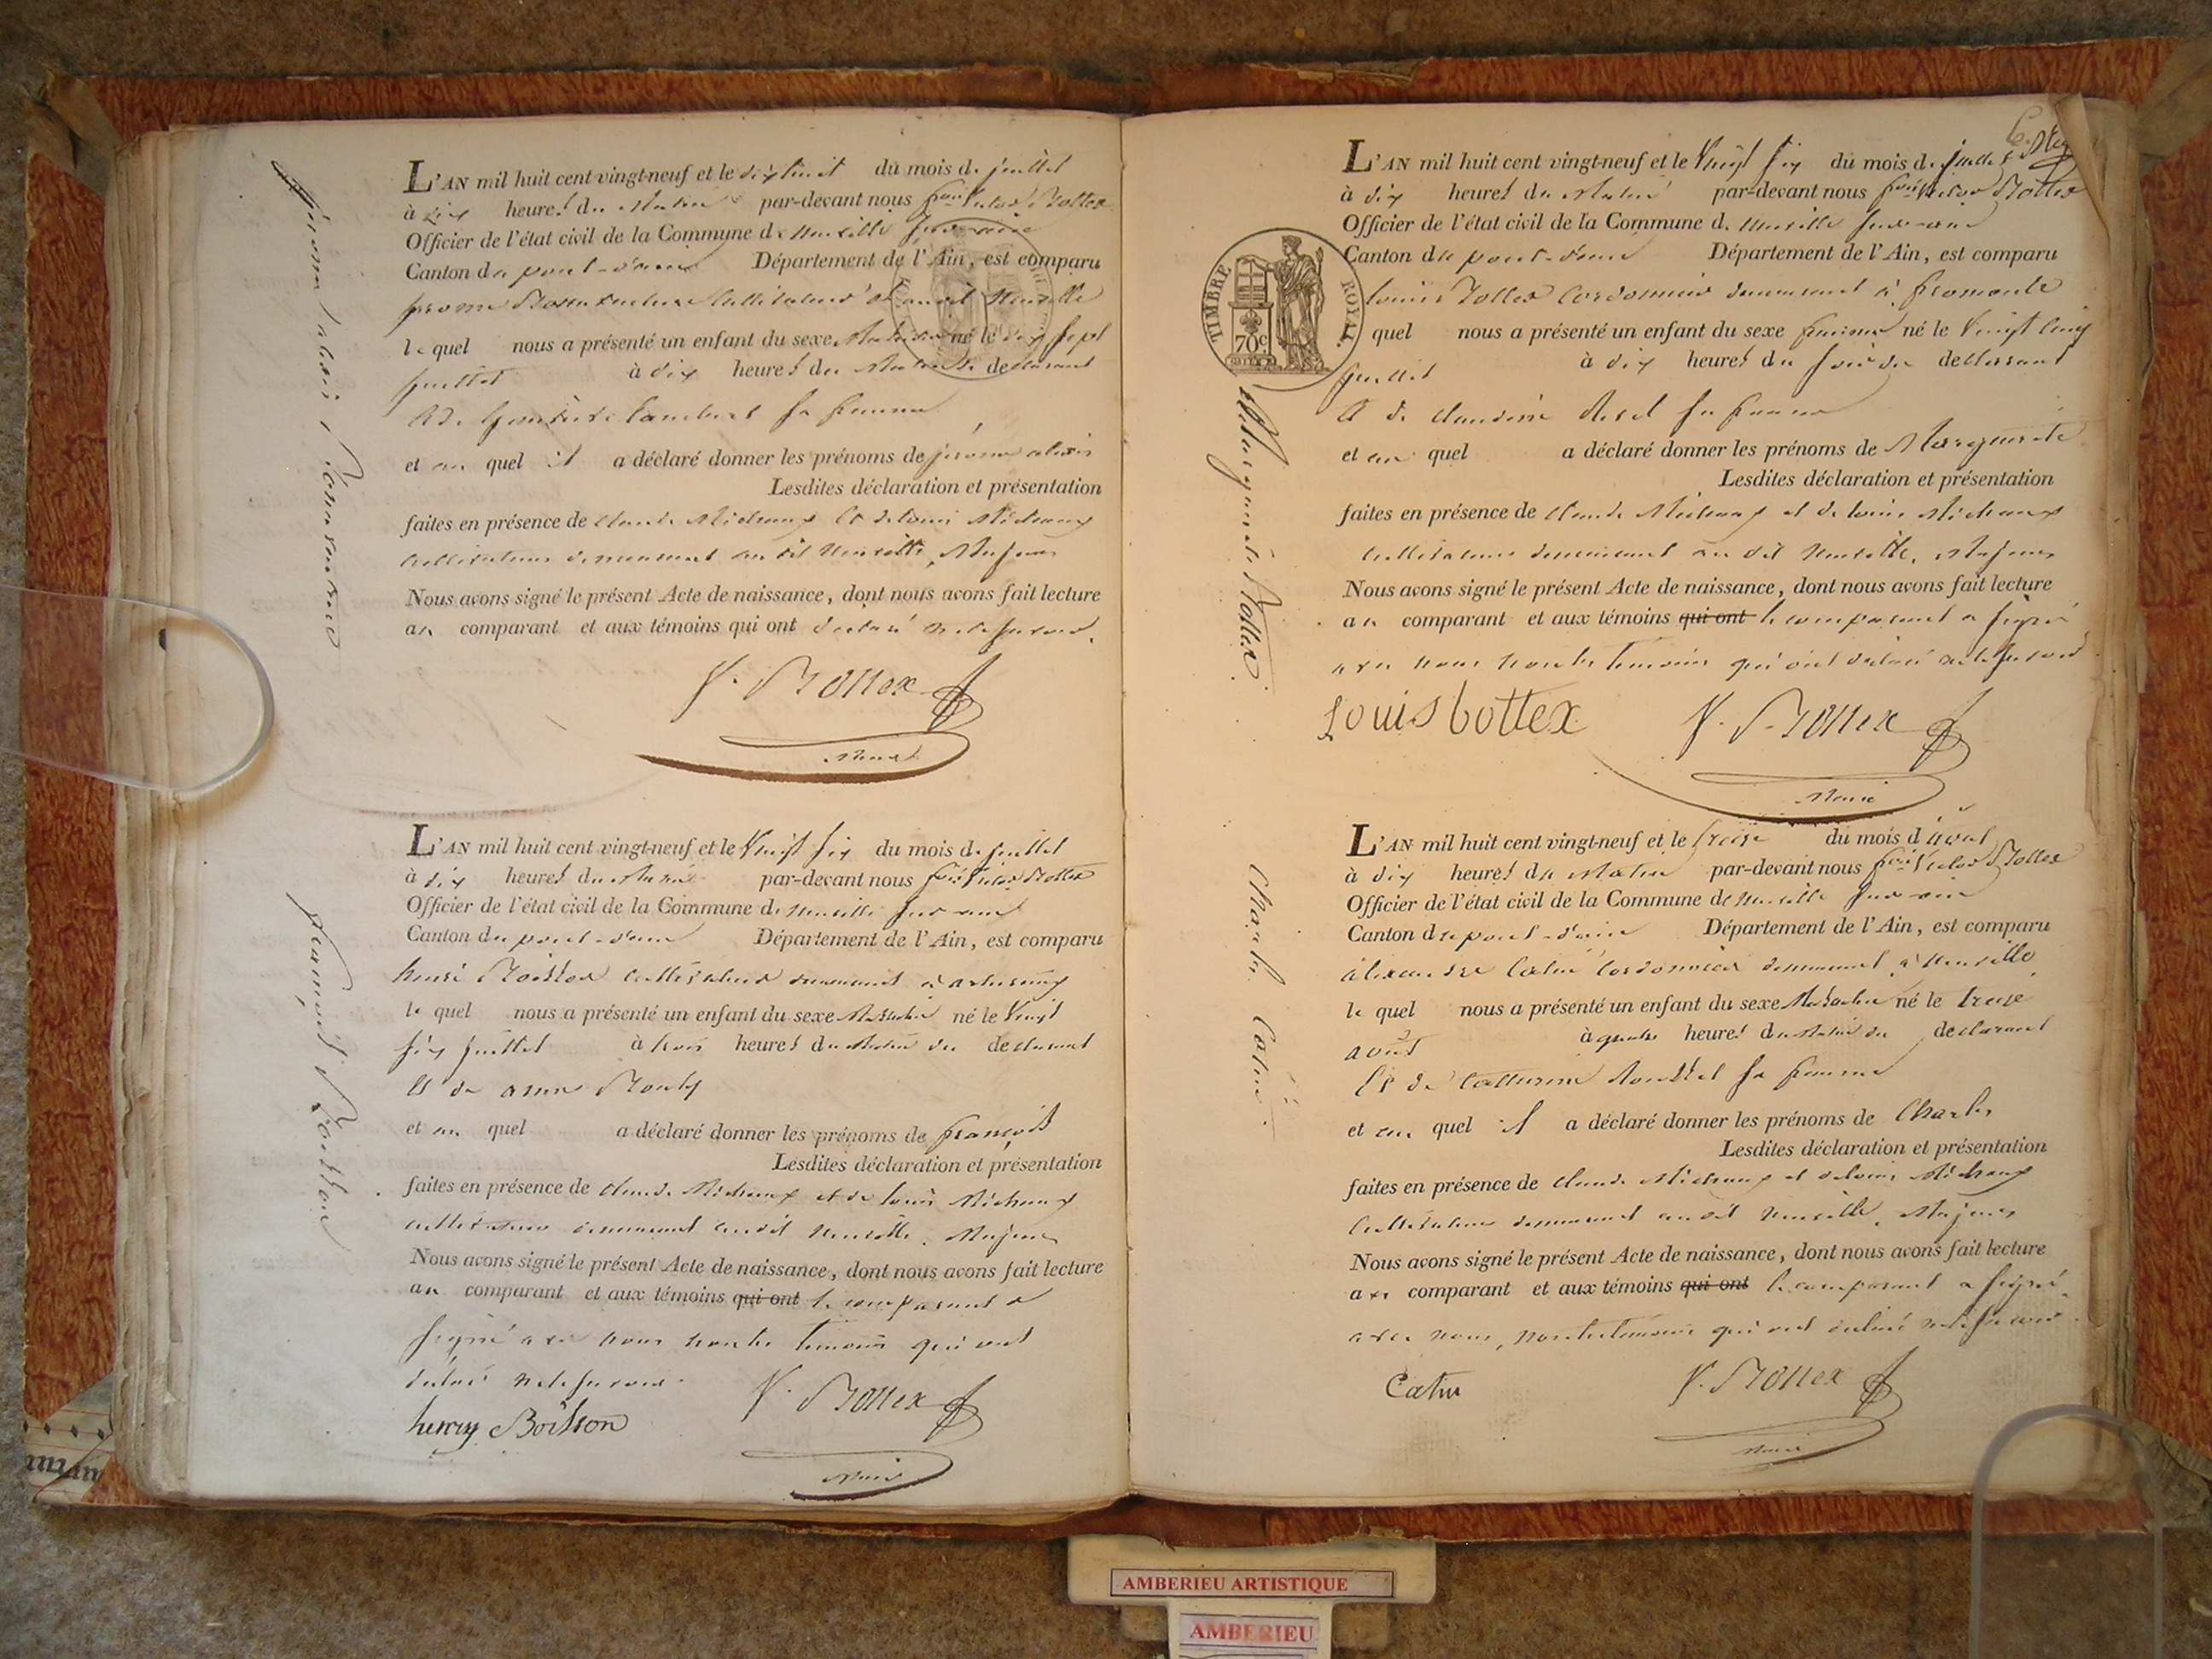 L'AN mil huit cent vingt-neuf et le dix huit du mois de juillet
à dix heures du Matin par-devant nous Victor Bottex
Officier de l'état civil de la Commune de Neuville sur ain
Canton de pont-d'ain Département de l'Ain, est comparu
cultivateur Neuville
le quel nous a présenté un enfant du sexe Masculin né le dix sept
juillet à dix heures du Matin de declarant
sa femme
et au quel il a déclaré donner les prénoms de jérome alexis
Lesdites déclaration et présentation
faites en présence de claude Michaux et de louis Michaux
cultivateurs demeurant au dit Neuville, Majeurs
Nous avons signé le présent Acte de naissance, dont nous avons fait lecture
au comparant et aux témoins qui ont declaré ne le savoir.
V. Bottex
Maire
jérome alexis
L'AN mil huit cent vingt-neuf et le Vingt six du mois de juillet
à dix heures du Matin par-devant nous Victor Bottex
Officier de l'état civil de la Commune de Neuville sur ain
Canton du pont-d'ain Département de l'Ain, est comparu
henri Boisson cultivateur demeurant à
le quel nous a présenté un enfant du sexe Masculin né le Vingt
six juillet à trois heures du Matin du declarant
Et de anne
et au quel a déclaré donner les prénoms de françois
Lesdites déclaration et présentation
faites en présence de claude Michaux et de louis Michaux
cultivateurs demeurant au dit Neuville. Majeurs
Nous avons signé le présent Acte de naissance, dont nous avons fait lecture
au comparant et aux témoins qui ont le comparant a
signé avec nous non les temoins qui ont
déclaré ne le savoir.
V. Bottex
henry Boisson
Maire
françois Boisson
L'AN mil huit cent vingt-neuf et le Vingt six du mois de juillet
à dix heures du Matin par-devant nous Victor Bottex
Officier de l'état civil de la Commune de Neuville sur ain
Canton du pont-d'ain Département de l'Ain, est comparu
louis Bottex cordonnier demeurant à fromente
quel nous a présenté un enfant du sexe feminin né le Vingt cinq
juillet à dix heures du soir du declarant
Et de claudine sa femme
et au quel a déclaré donner les prénoms de Marguerite
Lesdites déclaration et présentation
faites en présence de claude Michaux et de louis Michaux
cultivateurs demeurant au dit Neuville, Majeurs
Nous avons signé le présent Acte de naissance, dont nous avons fait lecture
au comparant et aux témoins qui ont le comparant a signé
avec nous non les temoins qui ont déclaré ne le savoir
Louis bottex V. Bottex
Maire
TIMBRE ROYAL.
70c
Marguerite Bottex
L'AN mil huit cent vingt-neuf et le treize du mois d'aout
à dix heures du Matin par-devant nous Victor Bottex
Officier de l'état civil de la Commune de Neuville sur ain
Canton du pont-d'ain Département de l'Ain, est comparu
alexandre Cotin cordonnier demeurant à Neuville
le quel nous a présenté un enfant du sexe Masculin né le treize
aout à quatre heures du Matin du declarant
Et de Catherine sa femme
et au quel il a déclaré donner les prénoms de Charles
Lesdites déclaration et présentation
faites en présence de claude Michaux et de louis Michaux
Cultivateurs demeurant au dit Neuville, Majeurs
Nous avons signé le présent Acte de naissance, dont nous avons fait lecture
au comparant et aux témoins qui ont le comparant a signé
avec nous, non les temoins qui ont déclaré ne le savoir.
V. Bottex
Maire
Charles
AMBERIEU ARTISTIQUE
AMBERIEU